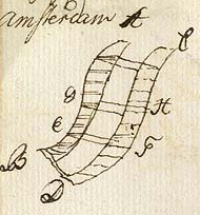 Amsterdam A
C
G
H
E
F
B
D